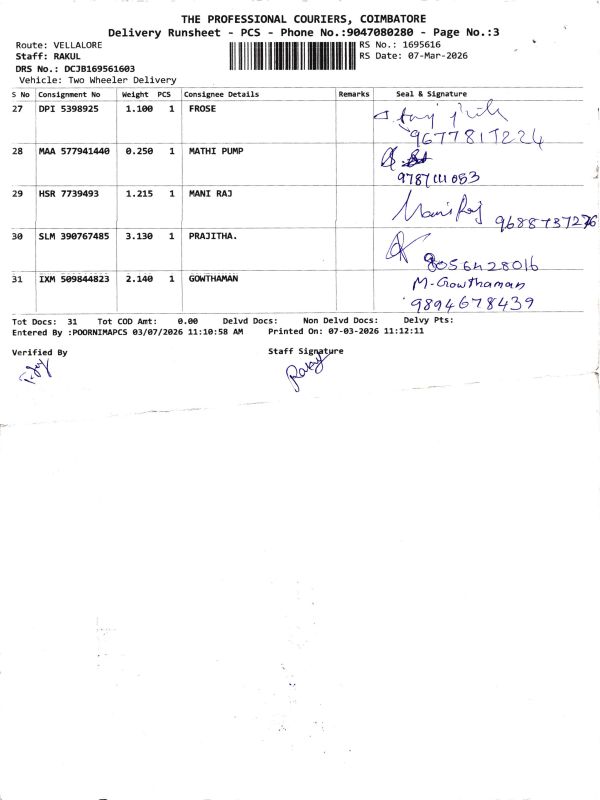 THE PROFESSIONAL COURIERS, COIMBATORE
Delivery Runsheet - PCS - Phone No.:9047080280 - Page No.:3
Route: VELLALORE
Staff: RAKUL
DRS No.: DCJB169561603
Vehicle: Two Wheeler Delivery
RS No.: 1695616
RS Date: 07-Mar-2026
S No Consignment No Weight PCS Consignee Details Remarks Seal & Signature
27 DPI 5398925 1.100 1 FROSE
9677817224
28 MAA 577941440 0.250 1 MATHI PUMP
9787111053
29 HSR 7739493 1.215 1 MANI RAJ
Mani Raj 9688737276
30 SLM 390767485 3.130 1 PRAJITHA.
8056428016
31 IXM 509844823 2.140 1 GOWTHAMAN
M-Gowthaman
9894678439
Tot Docs: 31 Tot COD Amt: 0.00 Delvd Docs: Non Delvd Docs: Delvy Pts:
Entered By :POORNIMAPCS 03/07/2026 11:10:58 AM Printed On: 07-03-2026 11:12:11
Verified By
Staff Signature